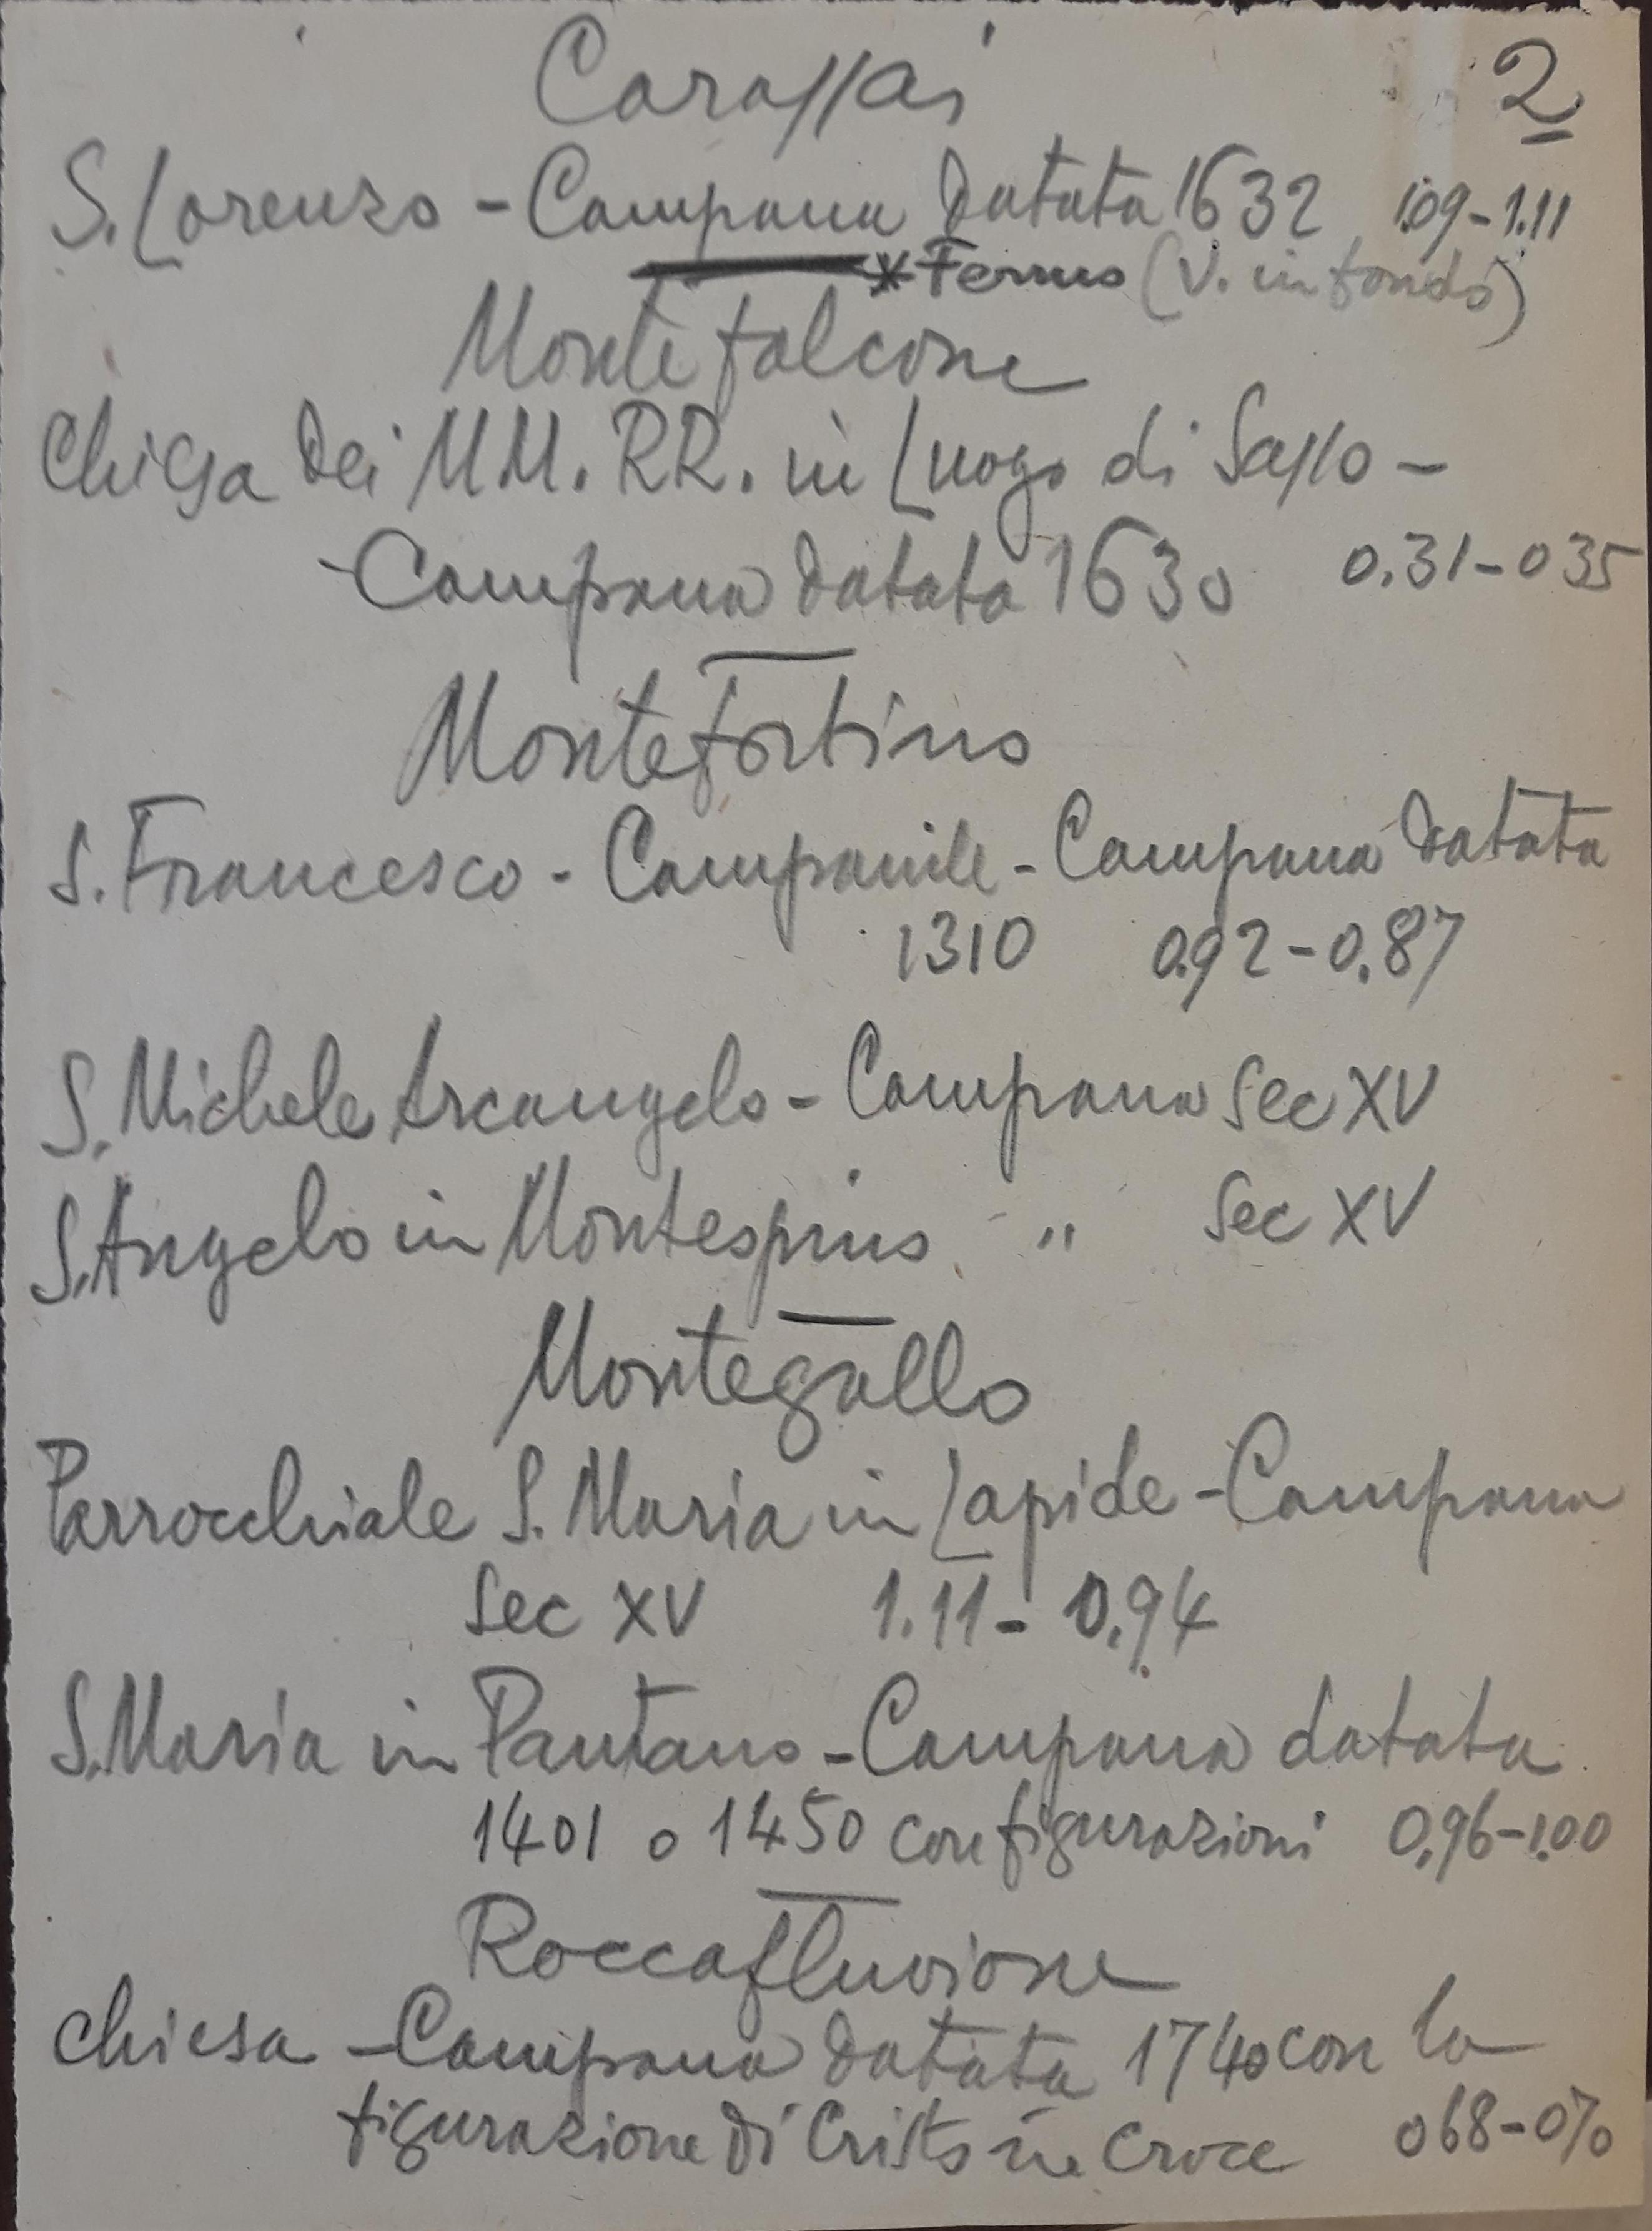 Carassai
2
S. Lorenzo - Campana datata 1632 1.09-1.11
* Fermo (V. in fondo)
Montefalcone
Chiesa dei MM. RR. in Luogo di Sasso -
- Campana datata 1630 0.31-035
Montefortino
S. Francesco - Campanile - Campana datata
1310 0.92-0.87
S. Michele Arcangelo - Campana Sec XV
S. Angelo in Montespino - " Sec XV
Montegallo
Parrocchiale S. Maria in Lapide - Campana
Sec XV 1.11-0.94
S. Maria in Pantano - Campana datata
1401 o 1450 con figurazioni 0.96-1.00
Roccafluvione
Chiesa - Campana datata 1740 con la
figurazione di Cristo in Croce 068-070